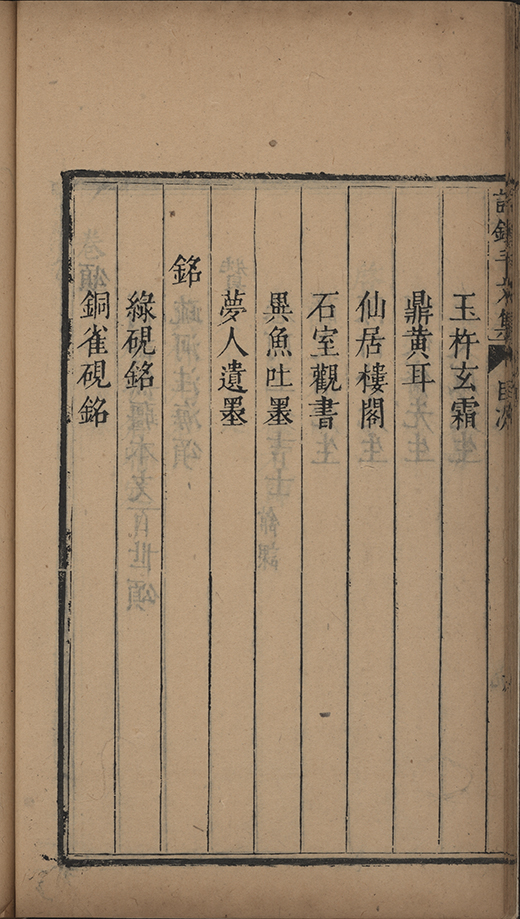 玉杵玄霜
鼎黄耳
仙居樓閣
石室觀書
異魚吐墨
夢人遺墨
銘
綠硯銘
銅雀硯銘